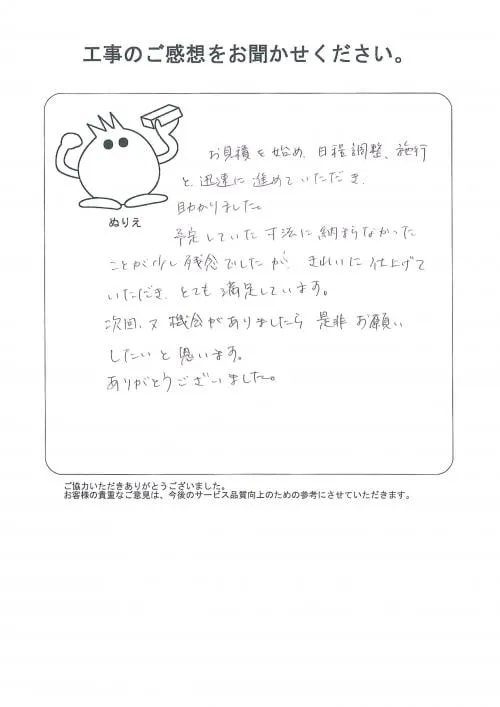 工事のご感想をお聞かせください。
お見積を始め、日程調整、施行
と迅速に進めていただき、
助かりました。
ぬりえ
予定していた寸法に納まらなかった
ことが少し残念でしたが、きれいに仕上げて
いただき、とても満足しています。
次回、又機会がありましたら是非お願い
したいと思います。
ありがとうございました。
ご協力いただきありがとうございました。
お客様の貴重なご意見は、今後のサービス品質向上のための参考にさせていただきます。